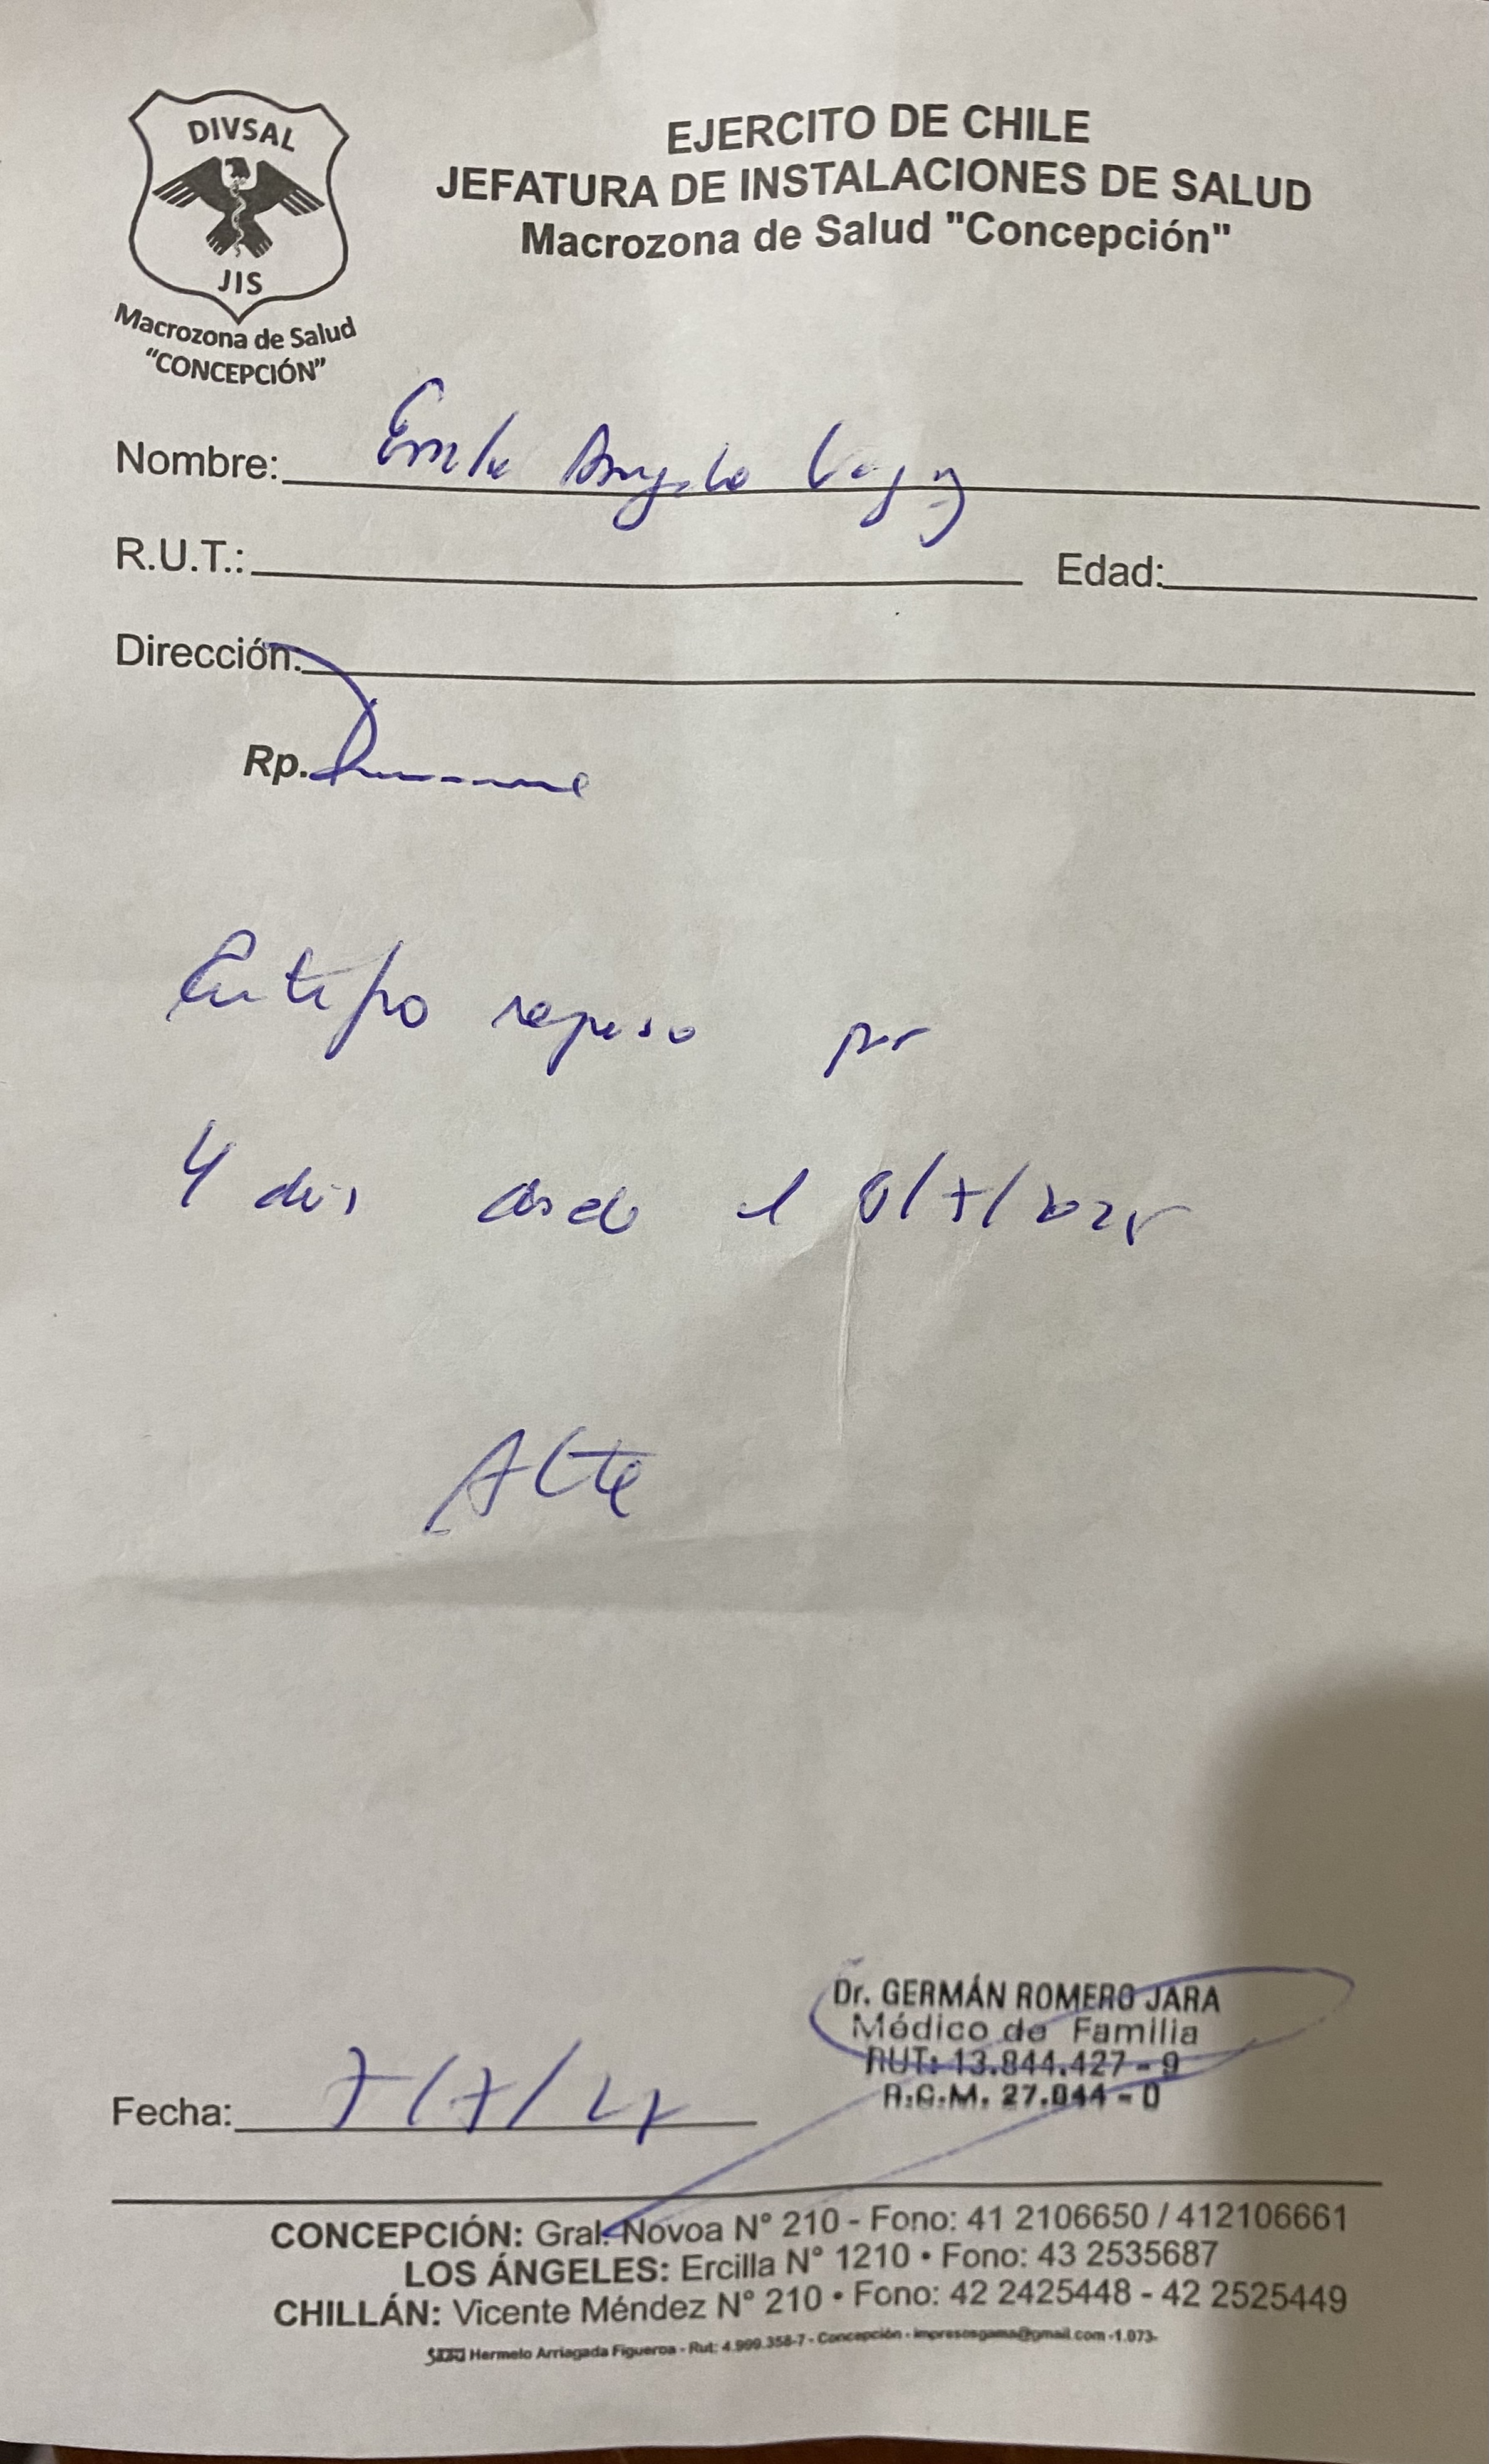 DIVSAL
JIS
Macrozona de Salud
"CONCEPCIÓN"
EJERCITO DE CHILE
JEFATURA DE INSTALACIONES DE SALUD
Macrozona de Salud "Concepción"
Nombre:
R.U.T.: Edad:
Dirección:
Rp.
Certifico reposo por
4 días desde el /7/2025
Atte
Dr. GERMÁN ROMERO JARA
Médico de Familia
RUT: 13.844.427-9
R.C.M. 27.044-0
Fecha: 7/7/25
CONCEPCIÓN: Gral. Novoa N° 210 - Fono: 41 2106650 / 412106661
LOS ÁNGELES: Ercilla N° 1210 • Fono: 43 2535687
CHILLÁN: Vicente Méndez N° 210 • Fono: 42 2425448 - 42 2525449
Hermelo Arriagada Figueroa - Rut: 4.999.358-7 - Concepción - impresosgama@gmail.com -1.073-